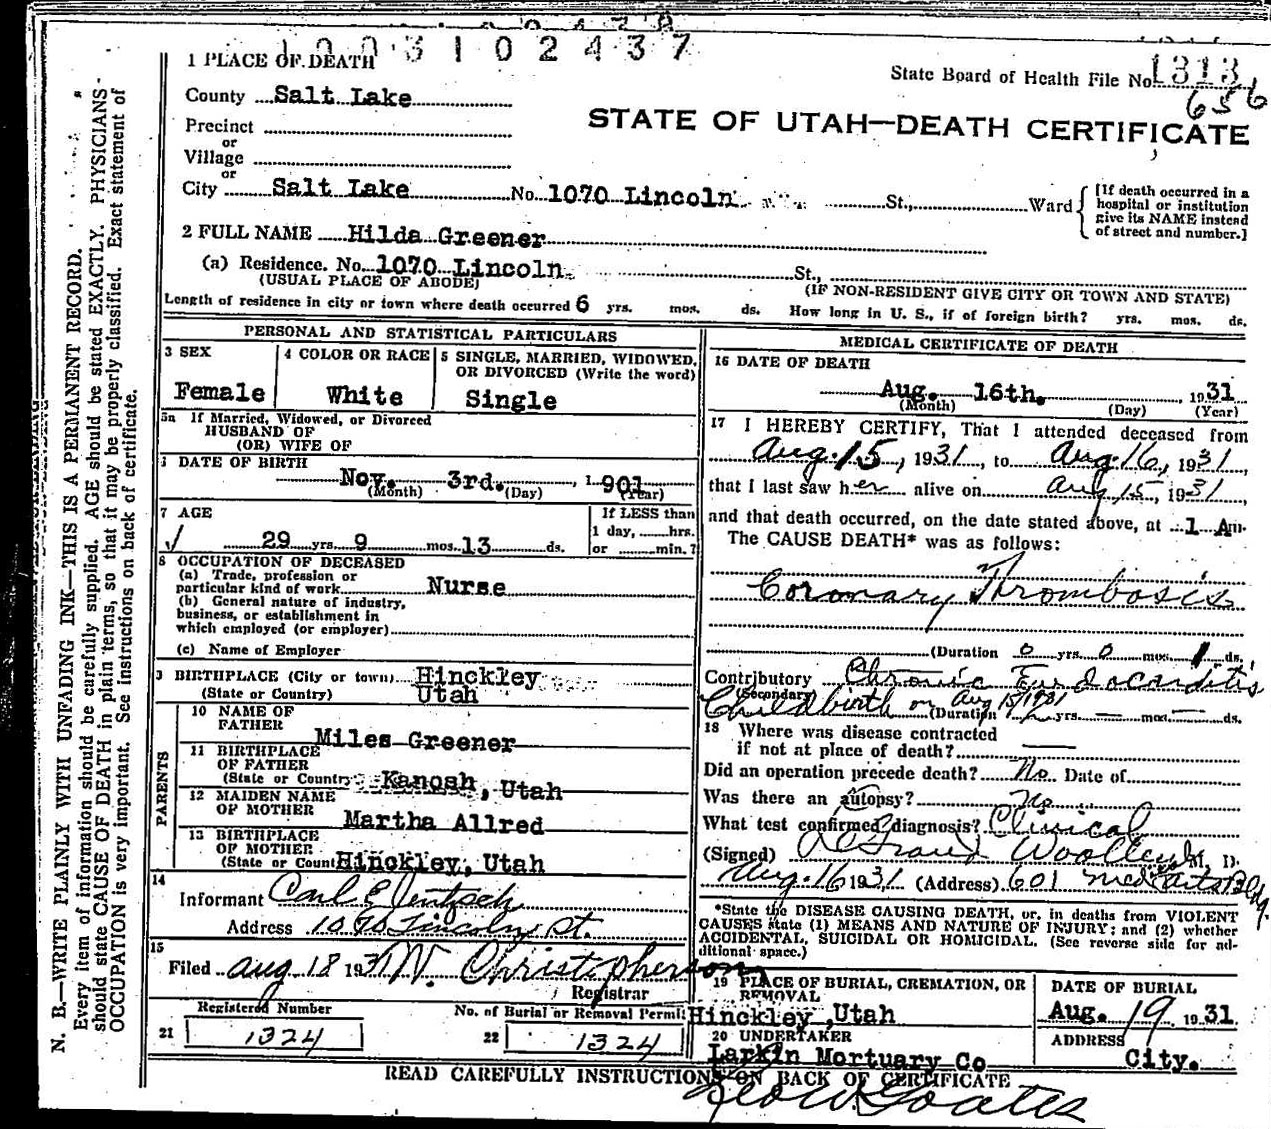 1003102437
1 PLACE OF DEATH
State Board of Health File No. 1313
656
County Salt Lake
STATE OF UTAH—DEATH CERTIFICATE
Precinct
or
Village
or
City Salt Lake No. 1070 Lincoln St., Ward
[If death occurred in a
hospital or institution
give its NAME instead
of street and number.]
2 FULL NAME Hilda Greener
(a) Residence. No. 1070 Lincoln St.,
(USUAL PLACE OF ABODE) (IF NON-RESIDENT GIVE CITY OR TOWN AND STATE)
Length of residence in city or town where death occurred 6 yrs. mos. ds. How long in U. S., if of foreign birth? yrs. mos. ds.
PERSONAL AND STATISTICAL PARTICULARS
3 SEX
Female
4 COLOR OR RACE
White
5 SINGLE, MARRIED, WIDOWED,
OR DIVORCED (Write the word)
Single
5a If Married, Widowed, or Divorced
HUSBAND OF
(OR) WIFE OF
DATE OF BIRTH
Nov. 3rd. , 1901
(Month) (Day) (Year)
7 AGE
29 yrs. 9 mos. 13 ds.
If LESS than
1 day, hrs.
or min.?
8 OCCUPATION OF DECEASED
(a) Trade, profession or
particular kind of work Nurse
(b) General nature of industry,
business, or establishment in
which employed (or employer)
(c) Name of Employer
9 BIRTHPLACE (City or town) Hinckley
(State or Country) Utah
PARENTS
10 NAME OF
FATHER
Miles Greener
11 BIRTHPLACE
OF FATHER
(State or Country) Kanosh, Utah
12 MAIDEN NAME
OF MOTHER
Martha Allred
13 BIRTHPLACE
OF MOTHER
(State or Count Hinckley, Utah
14
Informant Carl E Jentzsch
Address 1070 Lincoln St.
15
Filed Aug 18 1931 W. Christopherson
Registrar
Registered Number
21 1324
No. of Burial or Removal Permit
22 1324
MEDICAL CERTIFICATE OF DEATH
16 DATE OF DEATH
Aug. 16th. , 1931
(Month) (Day) (Year)
17 I HEREBY CERTIFY, That I attended deceased from
Aug. 15, 1931, to Aug. 16, 1931,
that I last saw her alive on Aug 15, 1931,
and that death occurred, on the date stated above, at 1 Am.
The CAUSE DEATH* was as follows:
Coronary Thrombosis
(Duration 0 yrs. 0 mos. 1 ds.
Contributory Chronic Endocarditis
(Secondary)
Childbirth on Aug 15/1931
(Duration yrs. — mos. — ds.
18 Where was disease contracted
if not at place of death? —
Did an operation precede death? No. Date of
Was there an autopsy? No
What test confirmed diagnosis? Clinical
(Signed) Woolley M. D.
Aug. 16 1931 (Address) 601 Med Arts Bldg.
*State the DISEASE CAUSING DEATH, or, in deaths from VIOLENT
CAUSES state (1) MEANS AND NATURE OF INJURY; and (2) whether
ACCIDENTAL, SUICIDAL OR HOMICIDAL. (See reverse side for ad-
ditional space.)
19 PLACE OF BURIAL, CREMATION, OR
REMOVAL
Hinckley ,Utah
DATE OF BURIAL
Aug. 19 1931
20 UNDERTAKER
Larkin Mortuary Co
ADDRESS
City.
READ CAREFULLY INSTRUCTIONS ON BACK OF CERTIFICATE
Geo W. Goates
N. B.—WRITE PLAINLY WITH UNFADING INK—THIS IS A PERMANENT RECORD.
Every item of information should be carefully supplied. AGE should be stated EXACTLY. PHYSICIANS
should state CAUSE OF DEATH in plain terms, so that it may be properly classified. Exact statement of
OCCUPATION is very important. See instructions on back of certificate.